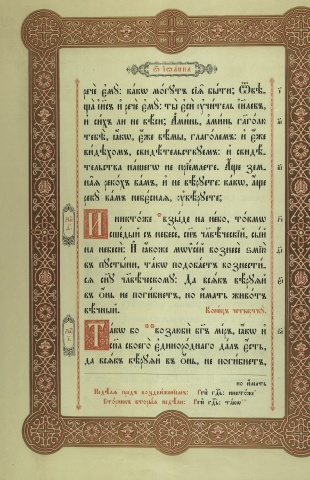 Ѿ Іѡанна
рече емꙋ: какѡ могꙋтъ сїѧ быти; Ѿвѣ-
ща і҃исъ и рече емꙋ: ты еси ᲂучитель і҃илевъ,
и сихъ ли не вѣси; Аминь, аминь гл҃голю
тебѣ, ꙗкѡ, еже вѣмы, глаголемъ: и еже
видѣхомъ, свидѣтельствꙋемъ: и свидѣ-
тельства нашегѡ не прїемлете. Аще зем-
наѧ рекохъ вамъ, и не вѣрꙋете: какѡ, аще
рекꙋ вамъ небеснаѧ, ᲂувѣрꙋете;
И никтоже взыде на небо, токмѡ
сшедый съ небесе, сн҃ъ чл҃вѣческїй, сый
на небеси. И ꙗкоже мѡѷсей вознесе ѕмїю
въ пꙋстыни, такѡ подобаетъ вознести-
сѧ сн҃ꙋ чл҃вѣческомꙋ: Да всѧкъ вѣрꙋѧй
въ онь, не погибнетъ, но имать животъ
вѣчный. Конецъ четвертку.
Такѡ бо возлюби бг҃ъ мїръ, ꙗкѡ и
сн҃а своего единороднаго далъ есть,
да всѧкъ вѣрꙋѧй въ онь, не погибнетъ,
но имать
Недѣлѧ предъ воздвиженїемъ: Рече гдⷭ҇ь: никтоже
Вторникъ вторыѧ недѣли: Рече гдⷭ҇ь: такѡ